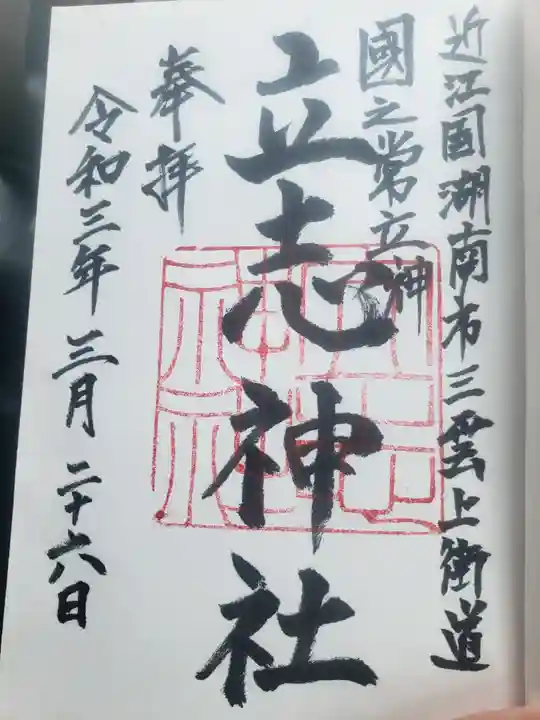 近江国湖南市三雲上街道
國之常立神
立志神社
奉拝
令和三年 三月 二十六日